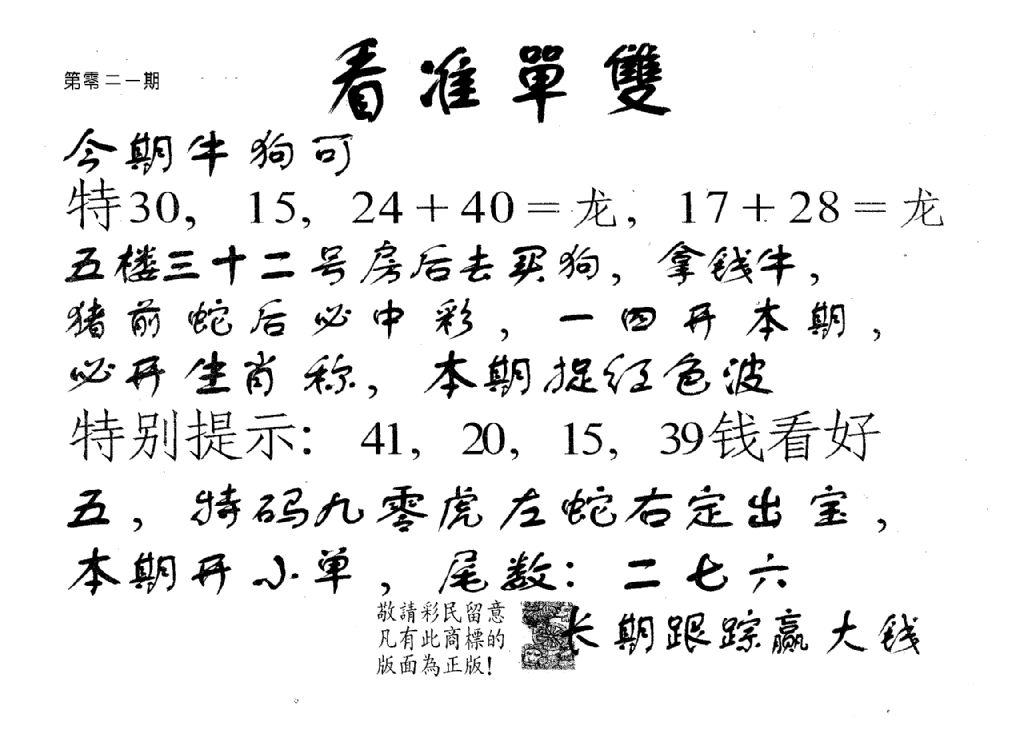 第零二一期
看准單雙
今期牛狗可
特30, 15, 24+40=龙, 17+28=龙
五楼三十二号房后去买狗, 拿钱牛,
猪前蛇后必中彩, 一四开本期,
必开生肖称, 本期捉红色波
特别提示: 41, 20, 15, 39钱看好
五, 特码九零虎左蛇右定出宝,
本期开小单, 尾数: 二七六
敬請彩民留意
凡有此商標的
版面為正版!
长期跟踪赢大钱